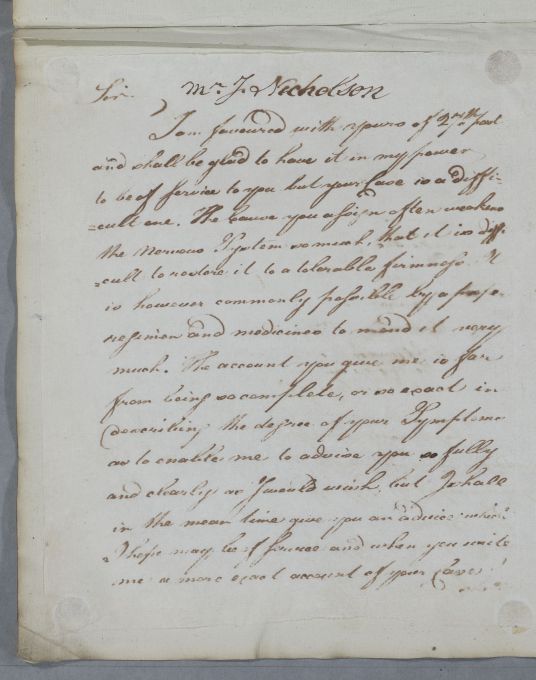 Mr. J. Nicholson
Sir.
I am favoured with yours of 27th past
and shall be glad to have it in my power
to be of Service to you but your Case is a diffi-
=cult one. The Cause you assign often weakens
the Nervous System so much, that it is diffi-
=cult to restore it to a tolerable firmness. It
is however commonly possible by a proper
regimen and medicines to mend it very
much. The account you give me is far
from being so complete, or so exact in
describing the degree of your Symptoms
as to enable me to advise you so fully
and clearly as I would wish, but I shall
in the mean time give you an advice which
I hope may be of service and when you write
me a more exact account of your Case